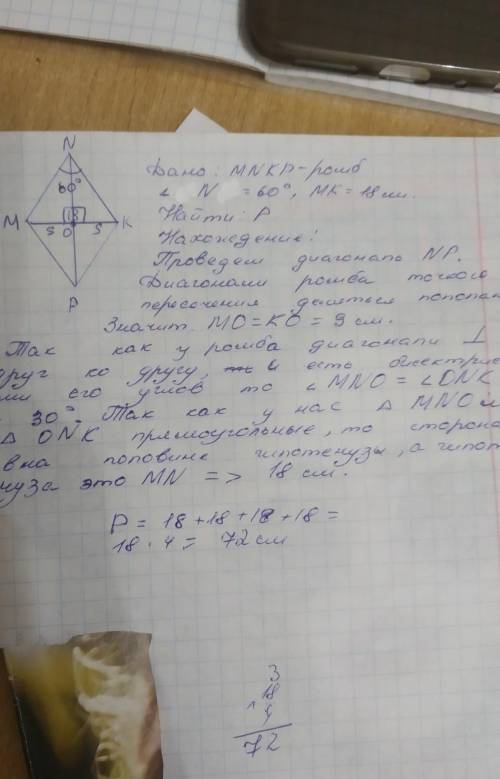 N
60°
M
18
K
5
O
5
P
Дано: MNKP-ромб
∠ N = 60°, MK = 18 см.
Найти: P
Нахождение:
Проведем диагональ NP.
Диагонали ромба точкой
пересечения делиться пополам
Значит MO=KO = 9 см.
Так как у ромба диагонали ⊥
друг ко другу, и есть биектри
его углов то ∠MNO = ∠ONK
30°. Так как у нас △ MNO и
△ ONK прямоугольные, то сторона
вна половине гипотенузы, а гипот
нуза это MN => 18 см.
P = 18 + 18 + 18 + 18 =
18 · 4 = 72 см
3
× 18
4
72